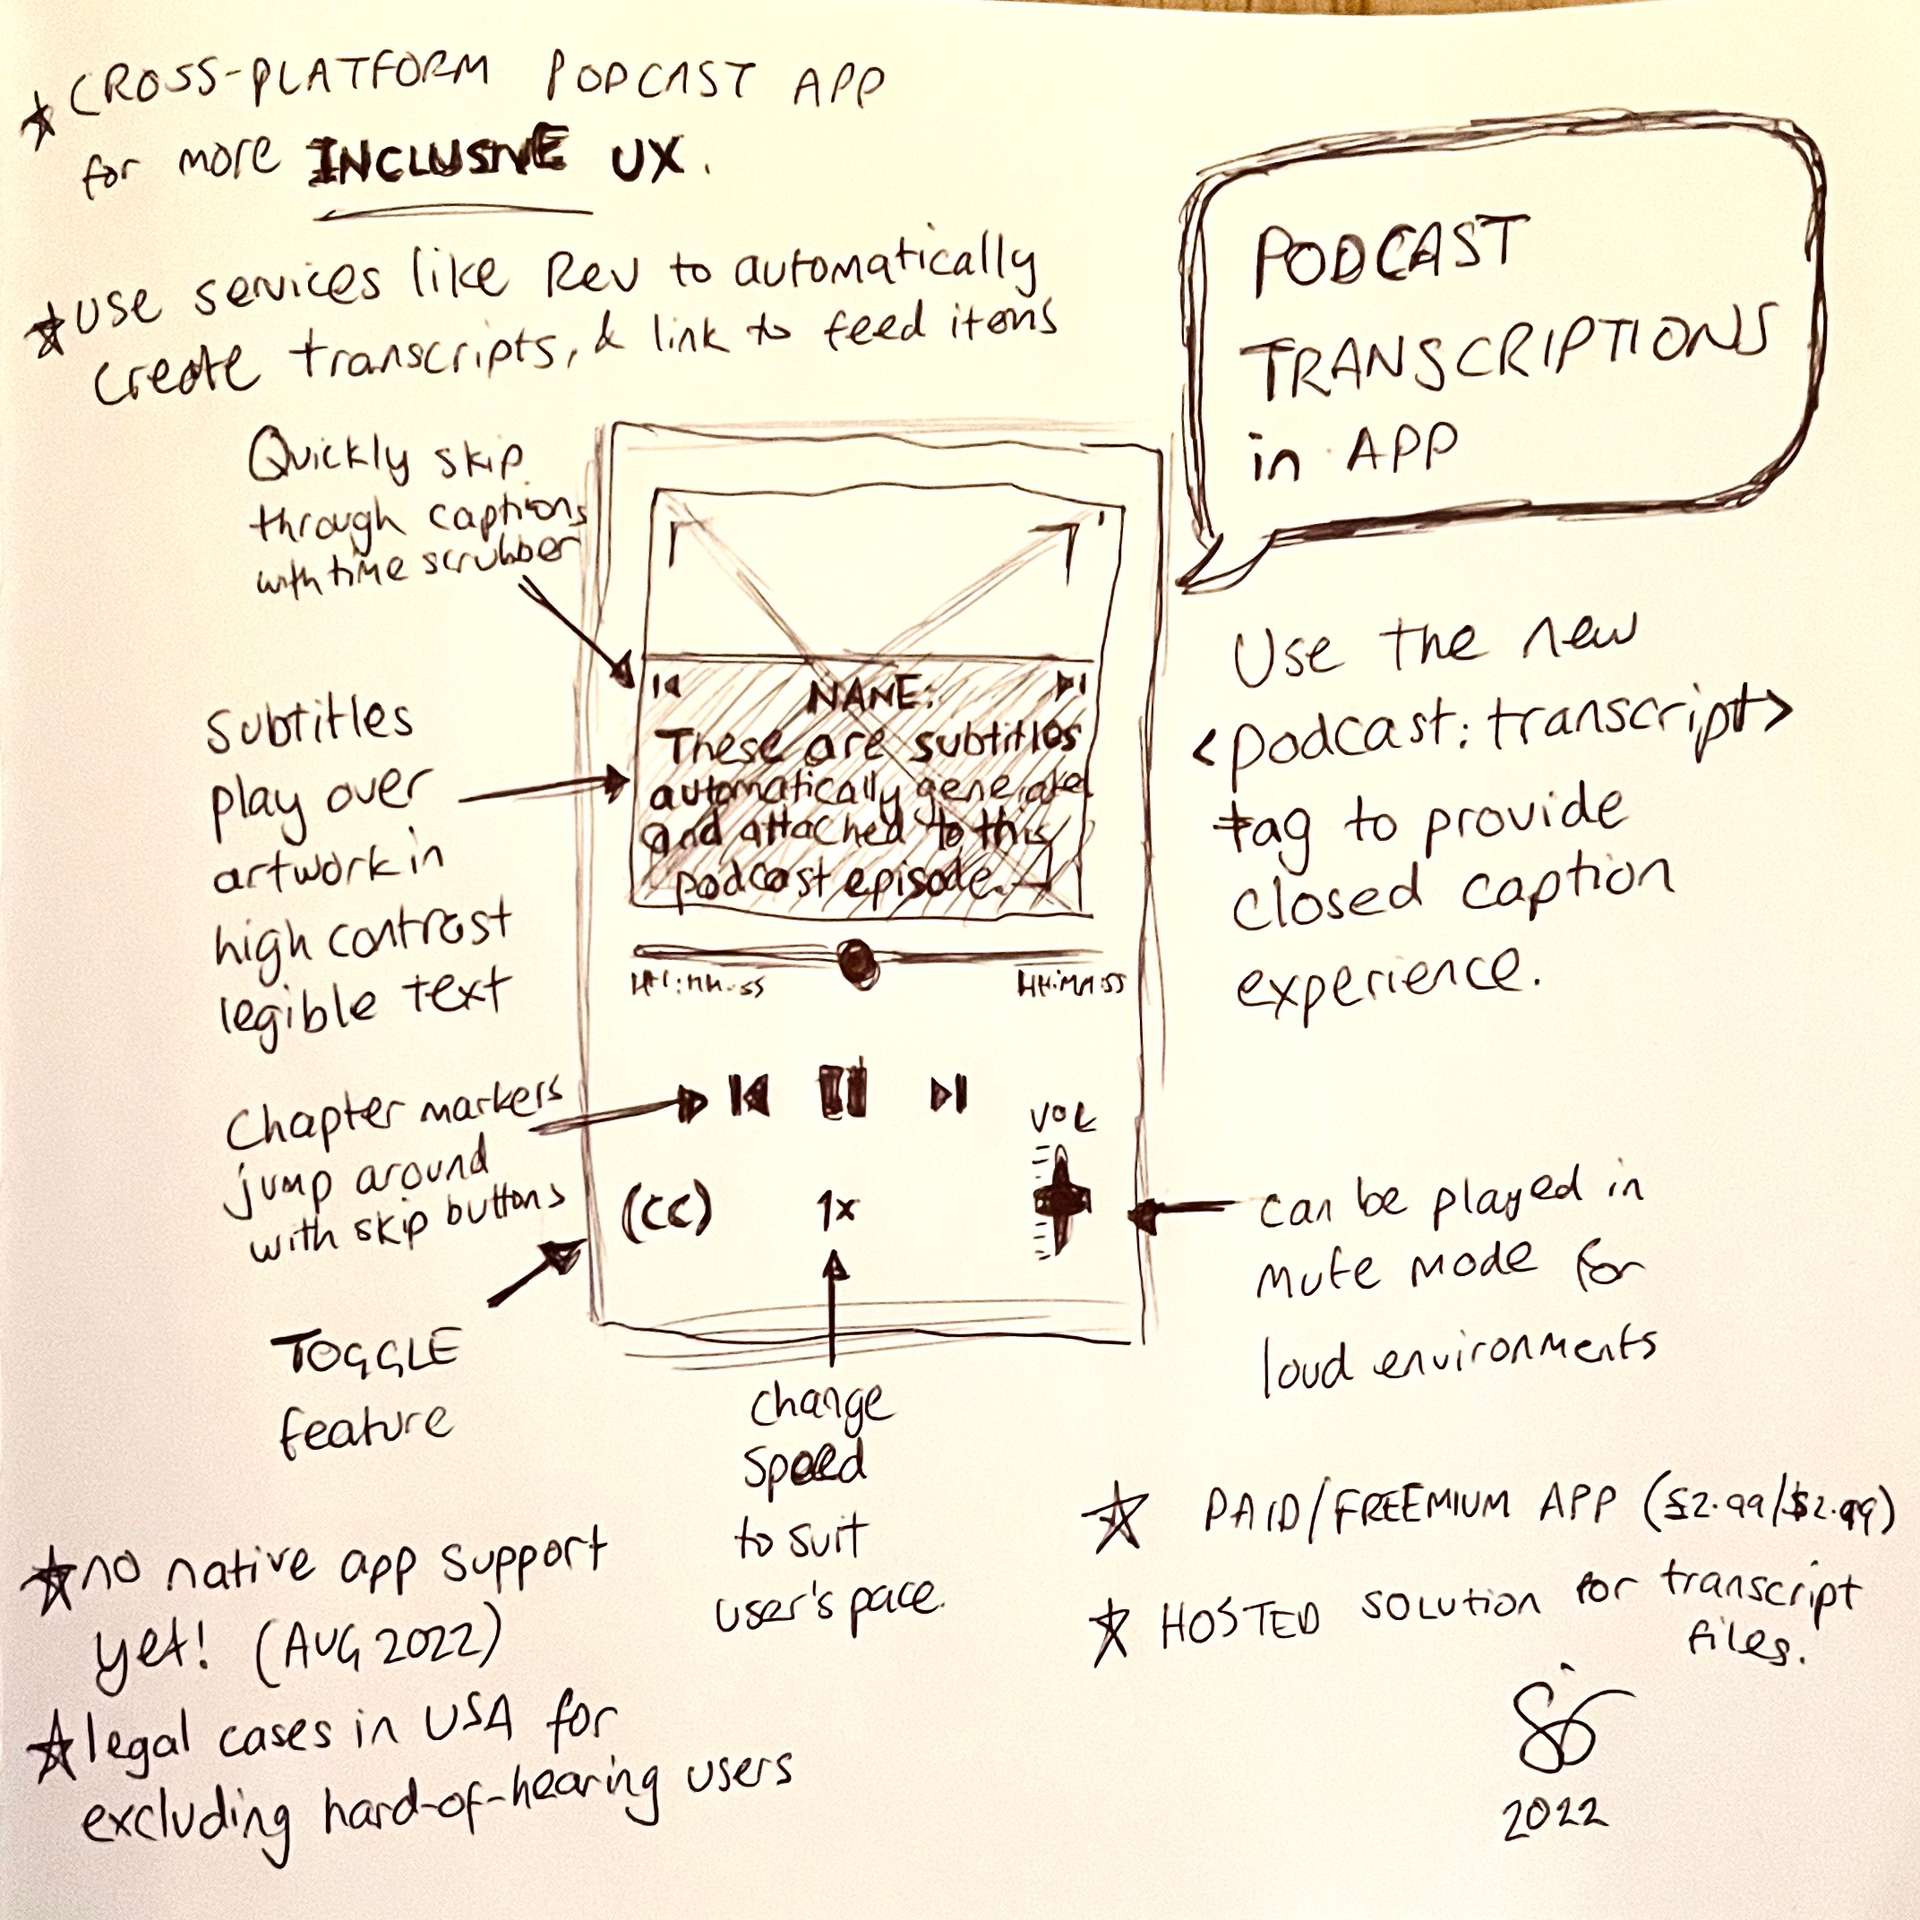 CROSS-PLATFORM PODCAST APP
for more INCLUSIVE UX.
use services like Rev to automatically
create transcripts, & link to feed items
PODCAST
TRANSCRIPTIONS
in APP
Quickly skip
through captions
with time scrubber
Subtitles
play over
artwork in
high contrast
legible text
Chapter markers
jump around
with skip buttons
TOGGLE
feature
NAME:
These are subtitles
automatically generated
and attached to this
podcast episode.
HH:MM:SS
HH:MM:SS
VOL
(CC)
1x
change
speed
to suit
user's pace.
Use the new
<podcast:transcript>
tag to provide
closed caption
experience.
can be played in
mute mode for
loud environments
no native app support
yet! (AUG 2022)
legal cases in USA for
excluding hard-of-hearing users
PAID/FREEMIUM APP (£2.99/$2.99)
HOSTED SOLUTION for transcript
files.
2022